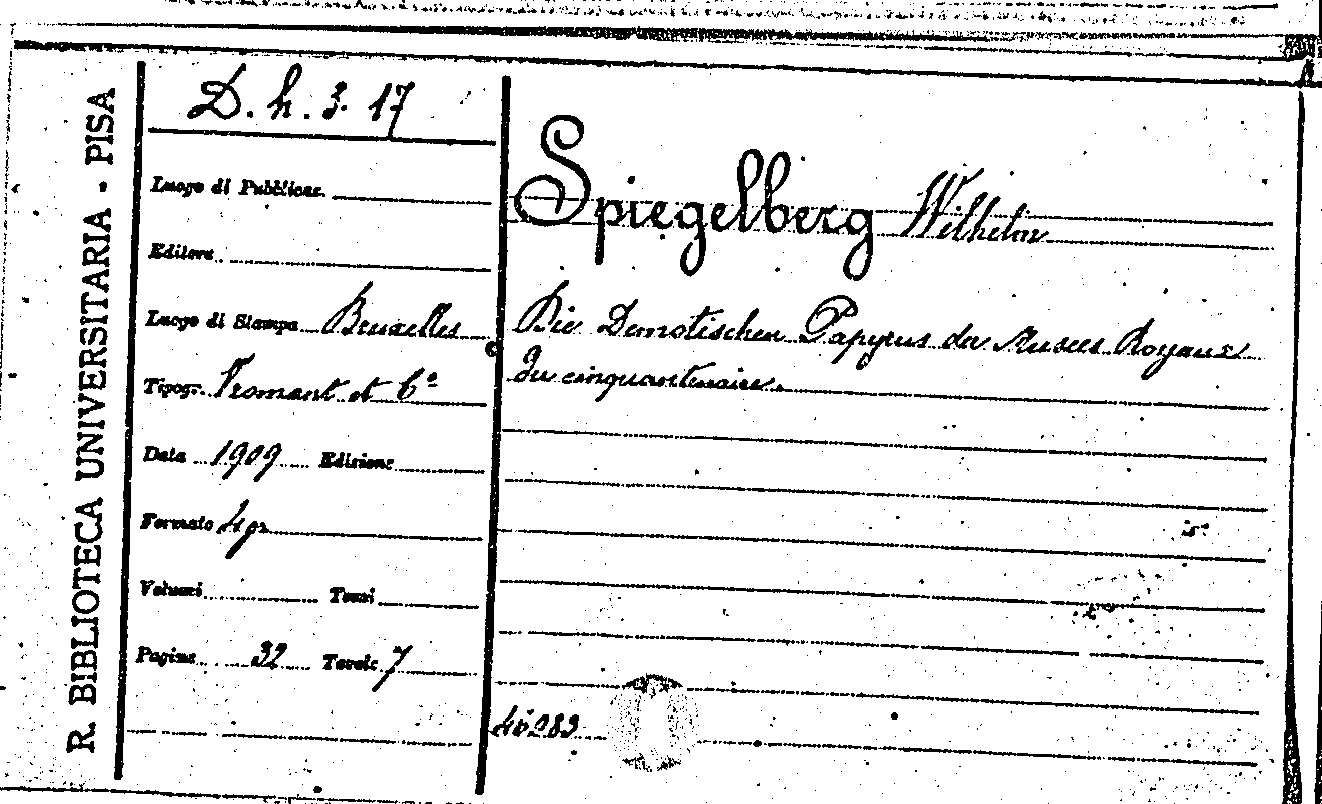 R. BIBLIOTECA UNIVERSITARIA - PISA
D. h. 3. 17
Luogo di Pubblicaz.
Editore
Luogo di Stampa Bruxelles
Tipogr. Vromant et Cº
Data 1909 Edizione
Formato 4º
Volumi Tomi
Pagine 32 Tavole 7
Spiegelberg Wilhelm
Die Demotischen Papyrus der Musées Royaux
du cinquantenaire.